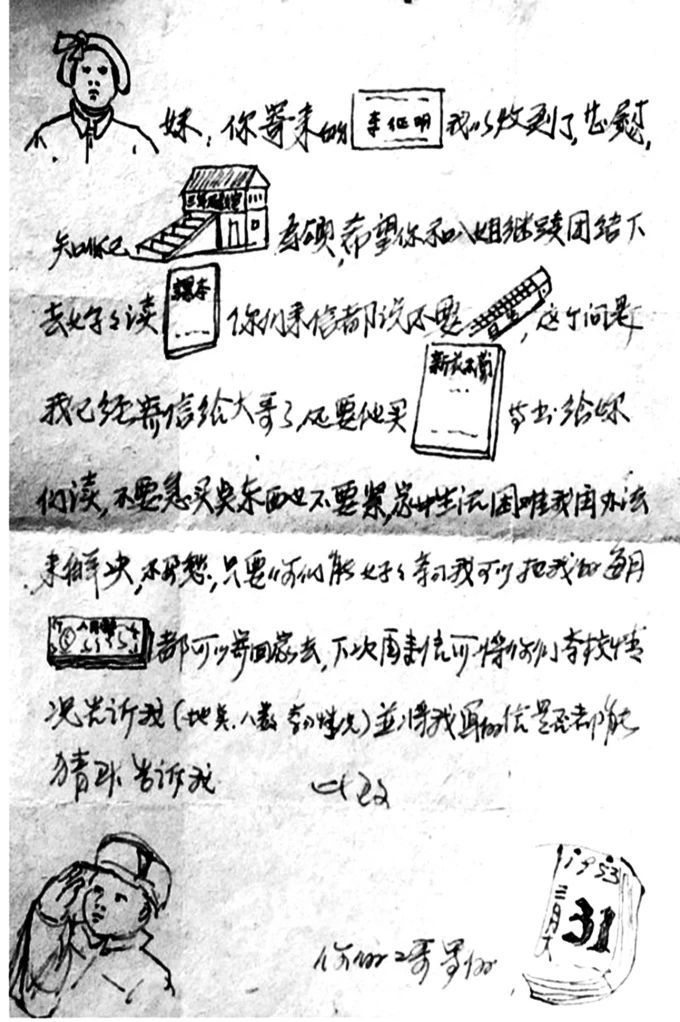 妹：你寄来的 李征明 我以收到了，甚慰，
知你已 希望你和八姐继续团结下
去好好读 课本 你们来信都说不要，这个问题
我已经寄信给大哥了，还要他买 等书给你
们读，不要急买 东西也不要紧，家中生活困难我用办法
来解决，不用愁，只要你们能好好学习我可以把我的每月
都可以寄回家去，下次再来信可将你们学校情
况告诉我（地点.人数 学习情况）並将我写的信是否都能
猜 告诉我 此致
1953
三月大
31
你的二哥等你